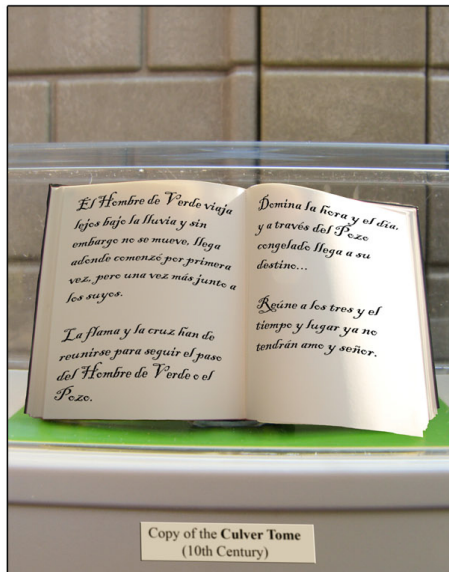 El Hombre de Verde viaja
lejos bajo la lluvia y sin
embargo no se mueve, llega
adonde comenzó por primera
vez, pero una vez más junto a
los suyos.
La flama y la cruz han de
reunirse para seguir el paso
del Hombre de Verde o el
Pozo.
Domina la hora y el día,
y a través del Pozo
congelado llega a su
destino...
Reúne a los tres y el
tiempo y lugar ya no
tendrán amo y señor.
Copy of the Culver Tome
(10th Century)